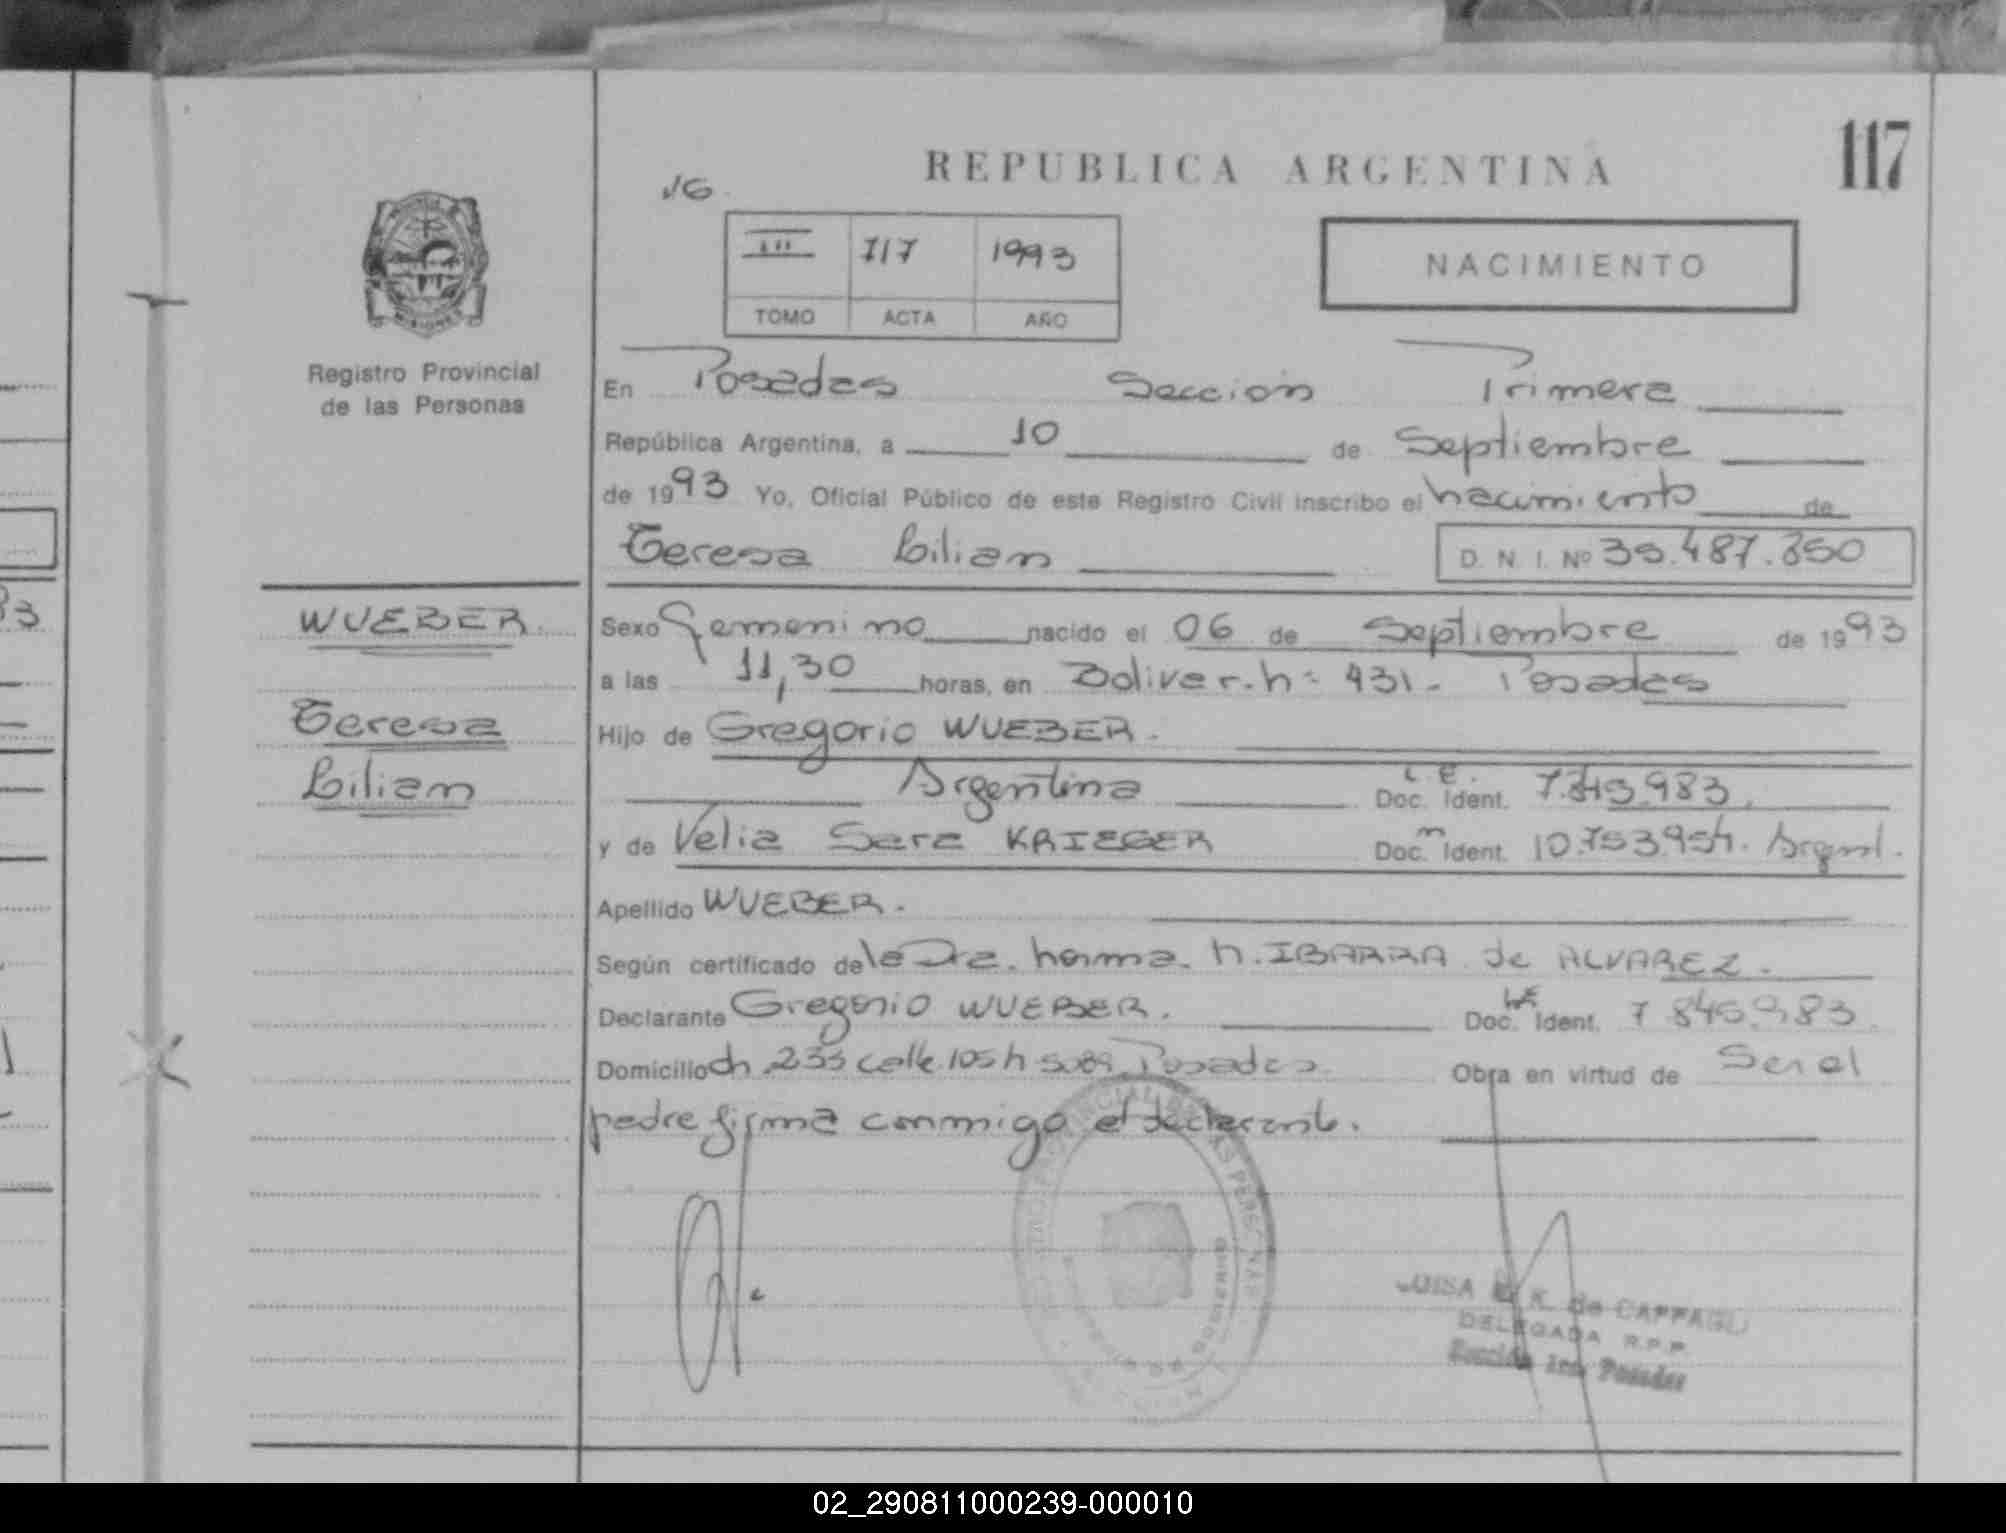 117
REPUBLICA ARGENTINA
16.
III 717 1993
TOMO ACTA AÑO
NACIMIENTO
MISIONES
Registro Provincial
de las Personas
En Posadas Seccion Primera
República Argentina, a 10 de Septiembre
de 1993 Yo, Oficial Público de este Registro Civil inscribo el nacimiento de
Teresa Lilian D. N. I. Nº
WUEBER.
Teresa
Lilian
Sexo Femenino nacido el 06 de Septiembre de 1993
a las 11,30 horas, en Bolivar. n= 431. Posadas
Hijo de Gregorio WUEBER.
Argentina L.E. Doc. Ident.
y de Velia Sara KRIEGER Doc. Ident. Argent.
Apellido WUEBER.
Según certificado de la Dra. Norma. N. IBARRA de ALVAREZ.
Declarante Gregorio WUEBER. LE Doc. Ident. 7 845.983.
Domicilio ch. 233 calle 105 n Posadas. Obra en virtud de Ser el
padre firma conmigo el declarante.
LUISA K. de CAFFAGLI
DELEGADA R.P.P.
Sección 1ra. Posadas
02_290811000239-000010